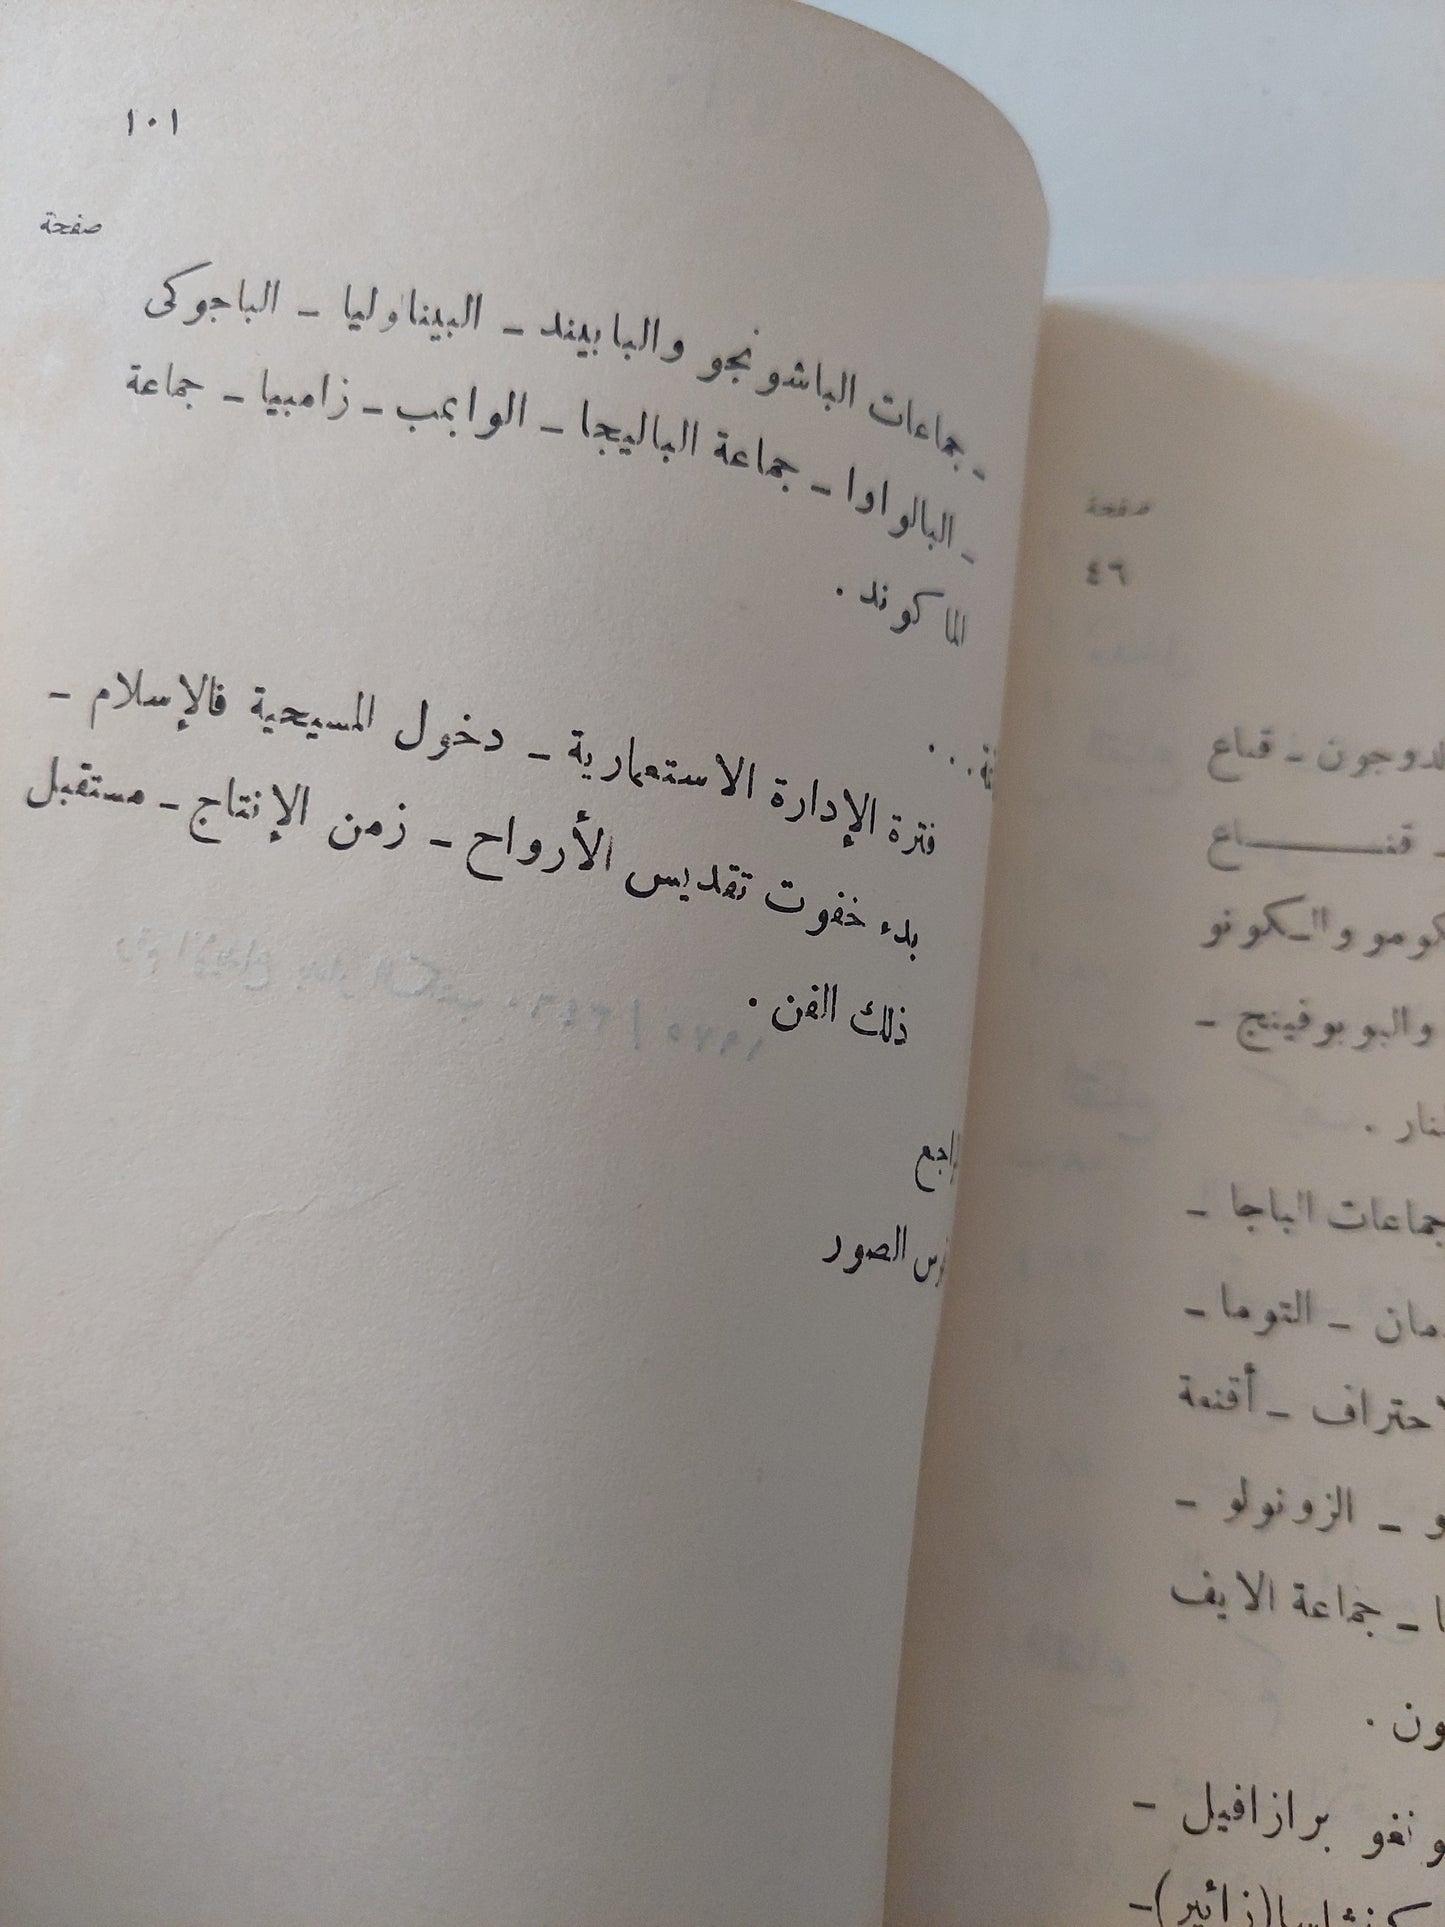 ١٠١
صفحة
ـ جماعات الباشونجو والبابيند ـ البيناوليا ـ الباجوكى
ـ البالواوا ـ جماعة الباليجا ـ الوابمب ـ زامبيا ـ جماعة
الماكوند .
فترة الإدارة الاستعمارية ـ دخول المسيحية فالإسلام ـ
بدء خفوت تقديس الأرواح ـ زمن الإنتاج ـ مستقبل
ذلك الفن .
الصور
صفحة
٤٦
ـ قناع
ـ قنـــــاع
والكونو
والبوبوفينج ـ
جماعات الباجا ـ
ـ التوما ـ
ـ أقنعة
ـ الزونولو ـ
ـ جماعة الايف
برازافيل ـ
(زائير) ـ